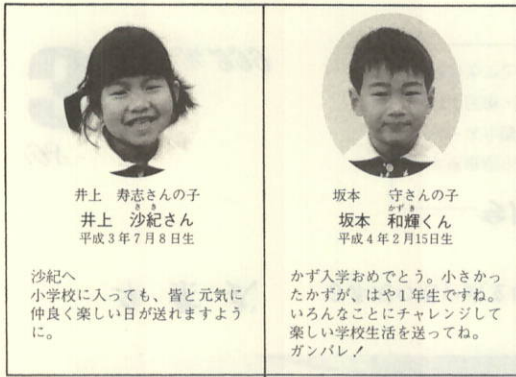 井上　寿志さんの子
さき
井上　沙紀さん
平成3年7月8日生
沙紀へ
小学校に入っても、皆と元気に
仲良く楽しい日が送れますよう
に。
坂本　守さんの子
かずき
坂本　和輝くん
平成4年2月15日生
かず入学おめでとう。小さかっ
たかずが、はや1年生ですね。
いろんなことにチャレンジして
楽しい学校生活を送ってね。
ガンバレ！